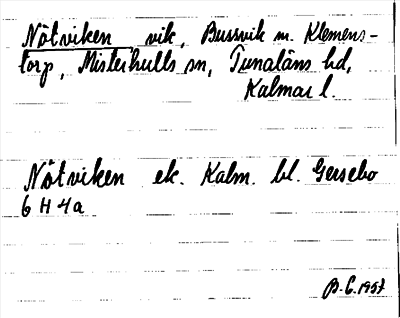 Nötviken vik, Bussvik m. Klemens-
torp, Misterhults sn, Tunaläns hd,
Kalmar l.
Nötviken ek. Kalm. bl. Gersebo
6 H 4a
B. C. 1957